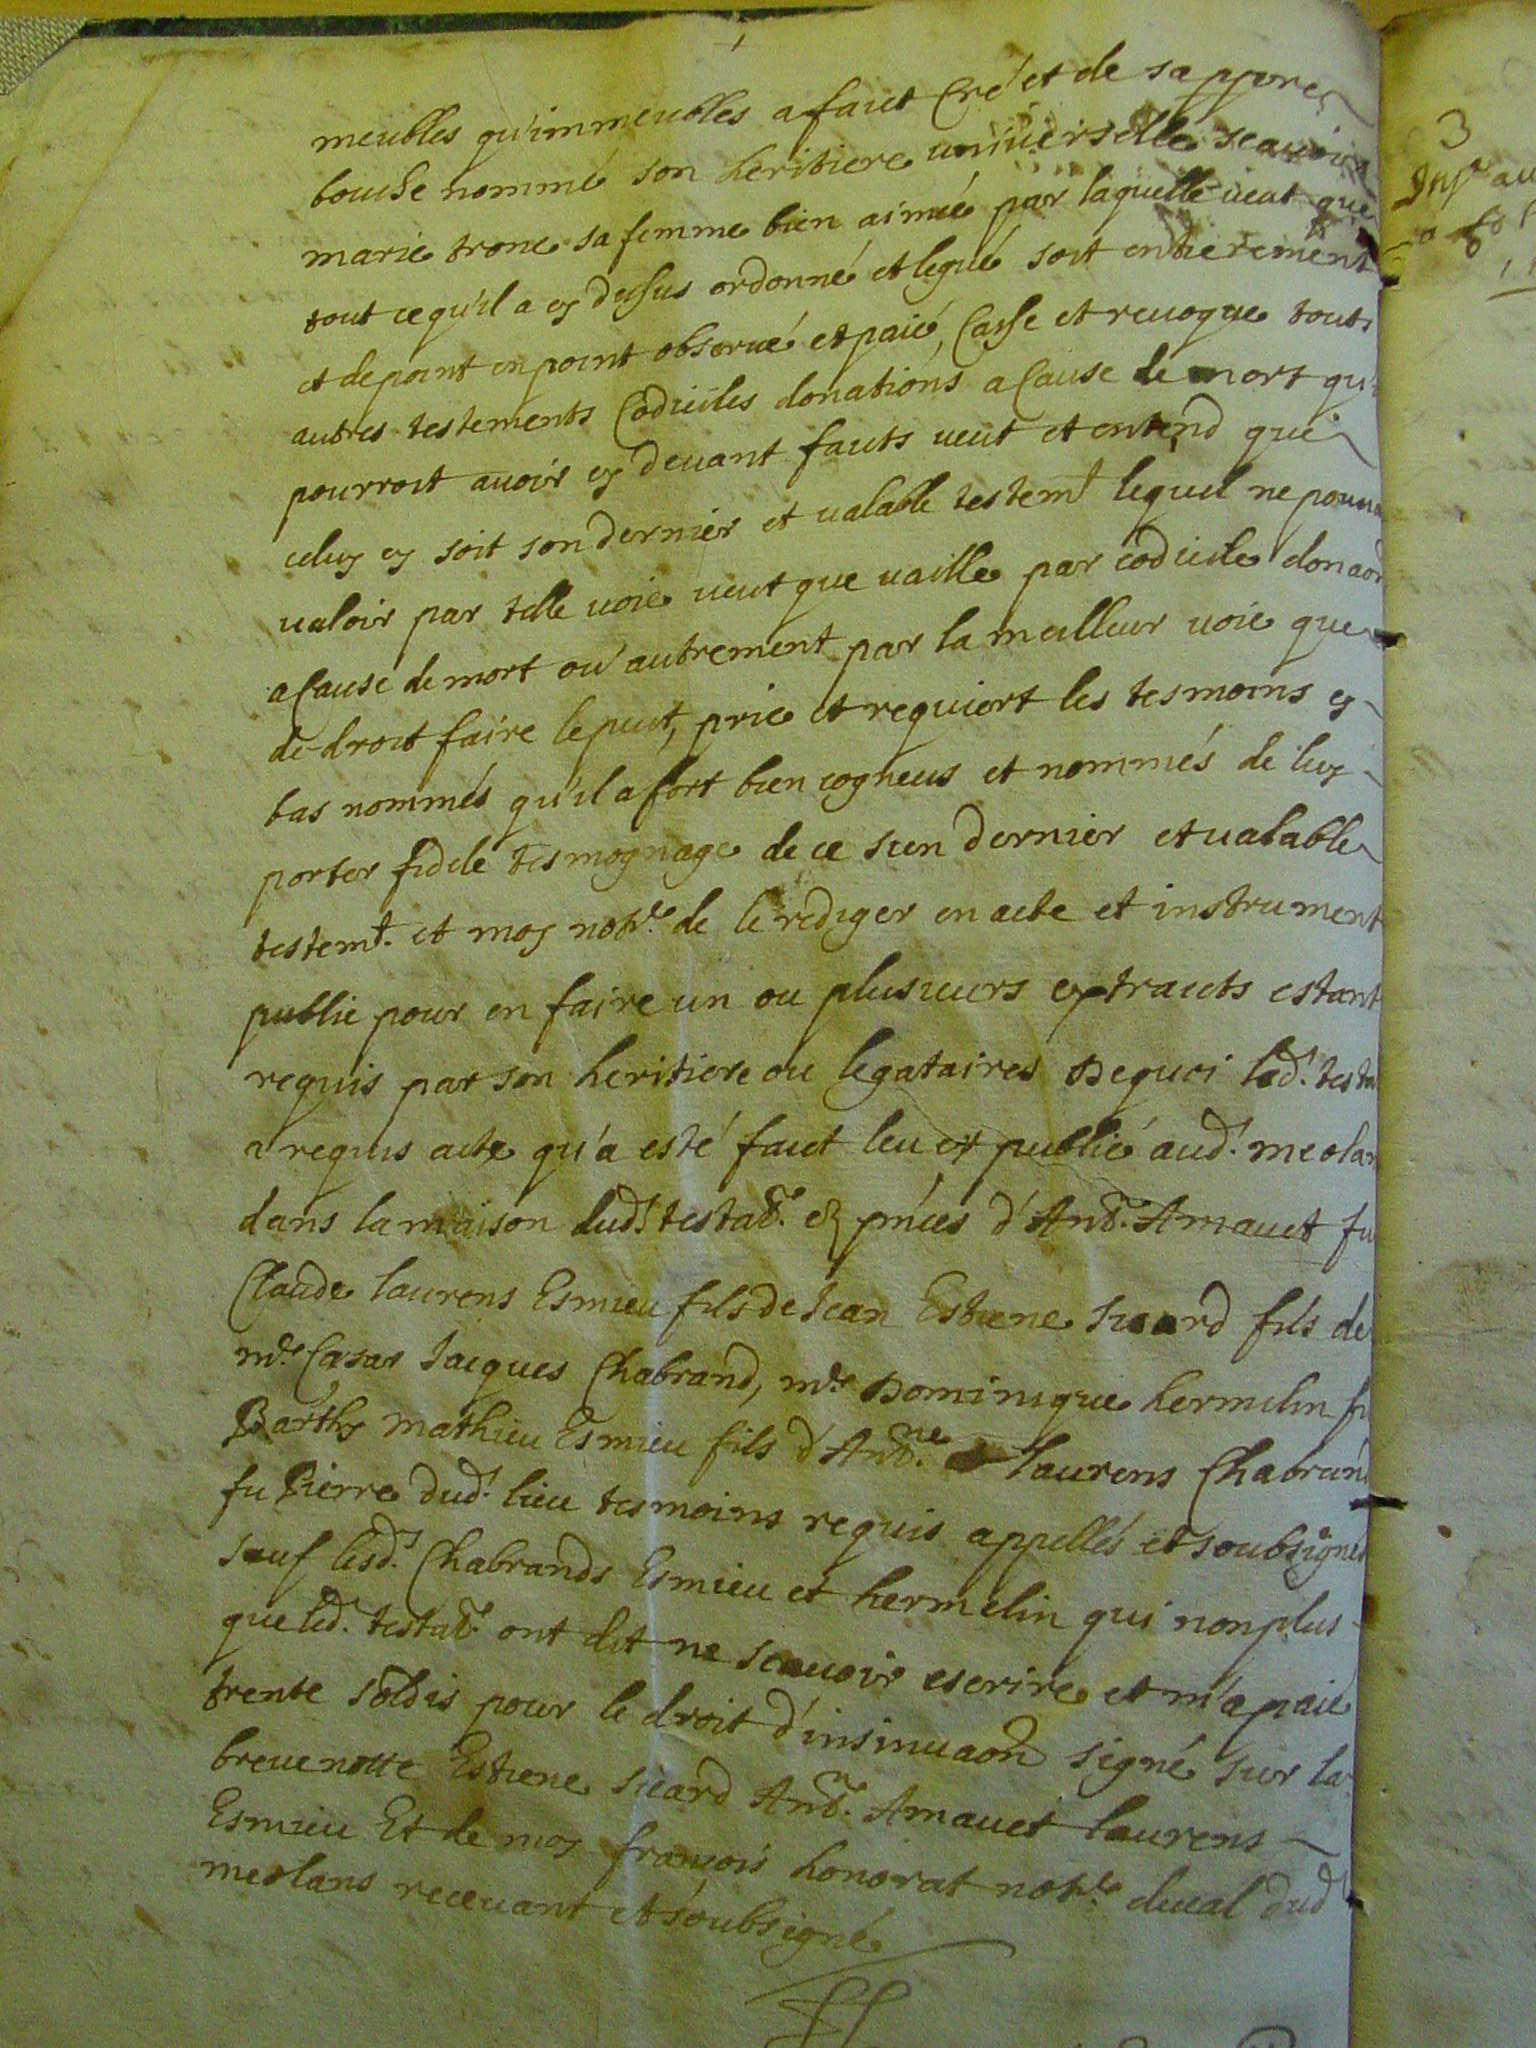 meubles qu'immeubles a faict Cré et de sa ppore
bouche nommé son heritiere universelle scavoir
marie tronc sa femme bien aimée par laquelle veut que
tout ce qu'il a cy dessus ordonné et legué soit entierement
et de point en point observé et paié, Casse et revoque touts
autres testements Codiciles donations a Cause de mort qu'il
pourroit avoir cy devant faicts veut et entend que
celuy cy soit son dernier et valable testemt lequel ne pouvan
valoir par telle voie veut que vaille par codicile donaon
a Cause de mort ou autrement par la meilleur voie que
de droit faire le peut, prie et requiert les tesmoins cy
bas nommés qu'il a fort bien cogneus et nommés de luy
porter fidele tesmognage de ce sien dernier et valable
testemt. et moy notre. de le rediger en acte et instrument
public pour en faire un ou plusieurs extraicts estant
requis par son heritiere ou legataires De quoi led. testa
a requis acte qu'a esté faict leu et publié aud. meolan
dans la maison dud. testatr. es pnces d'Antne. Amavet fu
Claude laurens Esmieu fils de Jean Estiene Sicard fils de
me. Casar Jacques Chabrand, me. Dominique hermelin fu
Barthy mathieu Esmieu fils d'Antne. laurens Chabrand
fu Pierre dud. lieu tesmoins requis appellés et soubsignés
sauf lesd. Chabrands Esmieu et hermelin qui non plus
que led. testatr. ont dit ne scavoir escrire et m'a paié
trente soldis pour le droit d'insinuaon signé sur la
breve notte Estiene sicard Antne. Amavet laurens
Esmieu Et de moy françois honorat notre. ducal dud
meolans recevant et soubsigné
3